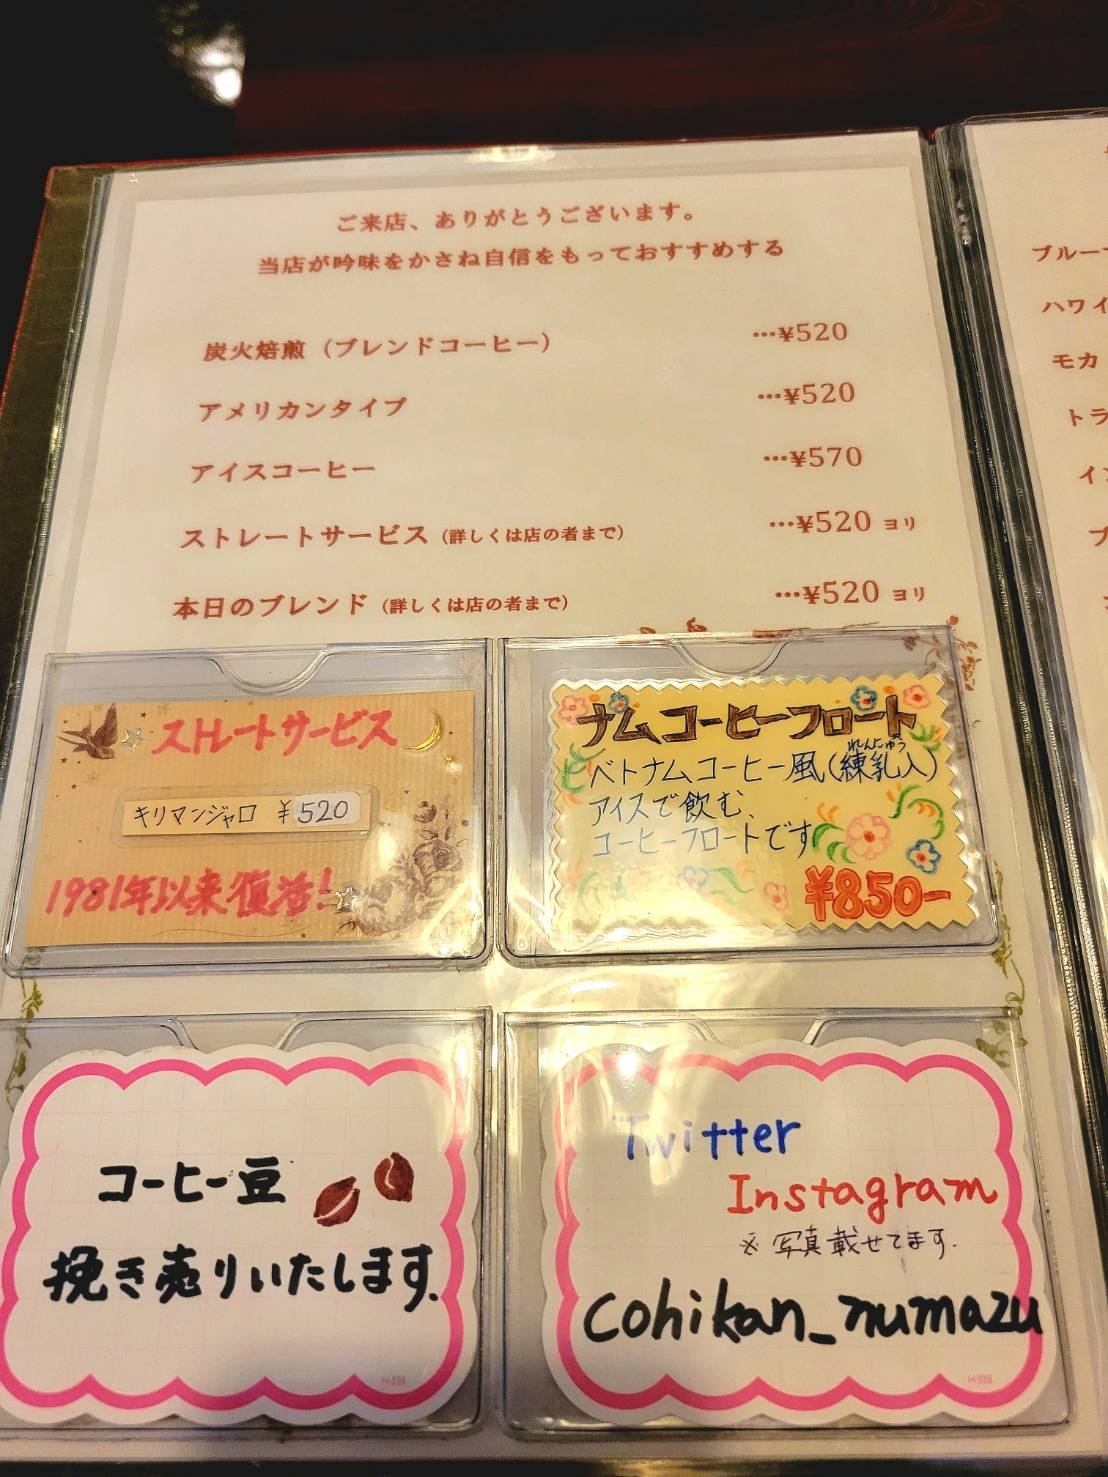 ご来店、ありがとうございます。
当店が吟味をかさね自信をもっておすすめする
炭火焙煎（ブレンドコーヒー） …¥520
アメリカンタイプ …¥520
アイスコーヒー …¥570
ストレートサービス（詳しくは店の者まで） …¥520 ヨリ
本日のブレンド（詳しくは店の者まで） …¥520 ヨリ
ストレートサービス
キリマンジャロ ¥520
1981年以来復活!
ナムコーヒーフロート
れんにゅう
ベトナムコーヒー風(練乳入)
アイスで飲む、
コーヒーフロートです
¥850-
コーヒー豆
挽き売りいたします.
Twitter
Instagram
※写真載せてます.
cohikan_numazu
ブルー
ハワイ
モカ
トラ